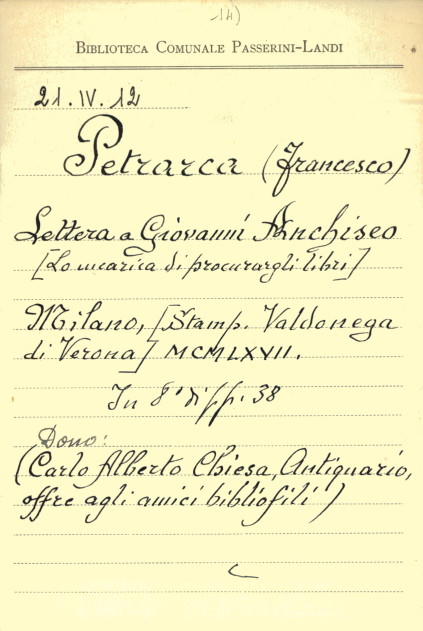 14)
BIBLIOTECA COMUNALE PASSERINI-LANDI
21.IV.12
Petrarca (Francesco)
Lettera a Giovanni Anchiseo
[Lo incarica di procurargli libri]
Milano, [Stamp. Valdonega
di Verona] MCMLXVII.
In 8° di pp. 38
Dono:
(Carlo Alberto Chiesa, Antiquario,
offre agli amici bibliofili)